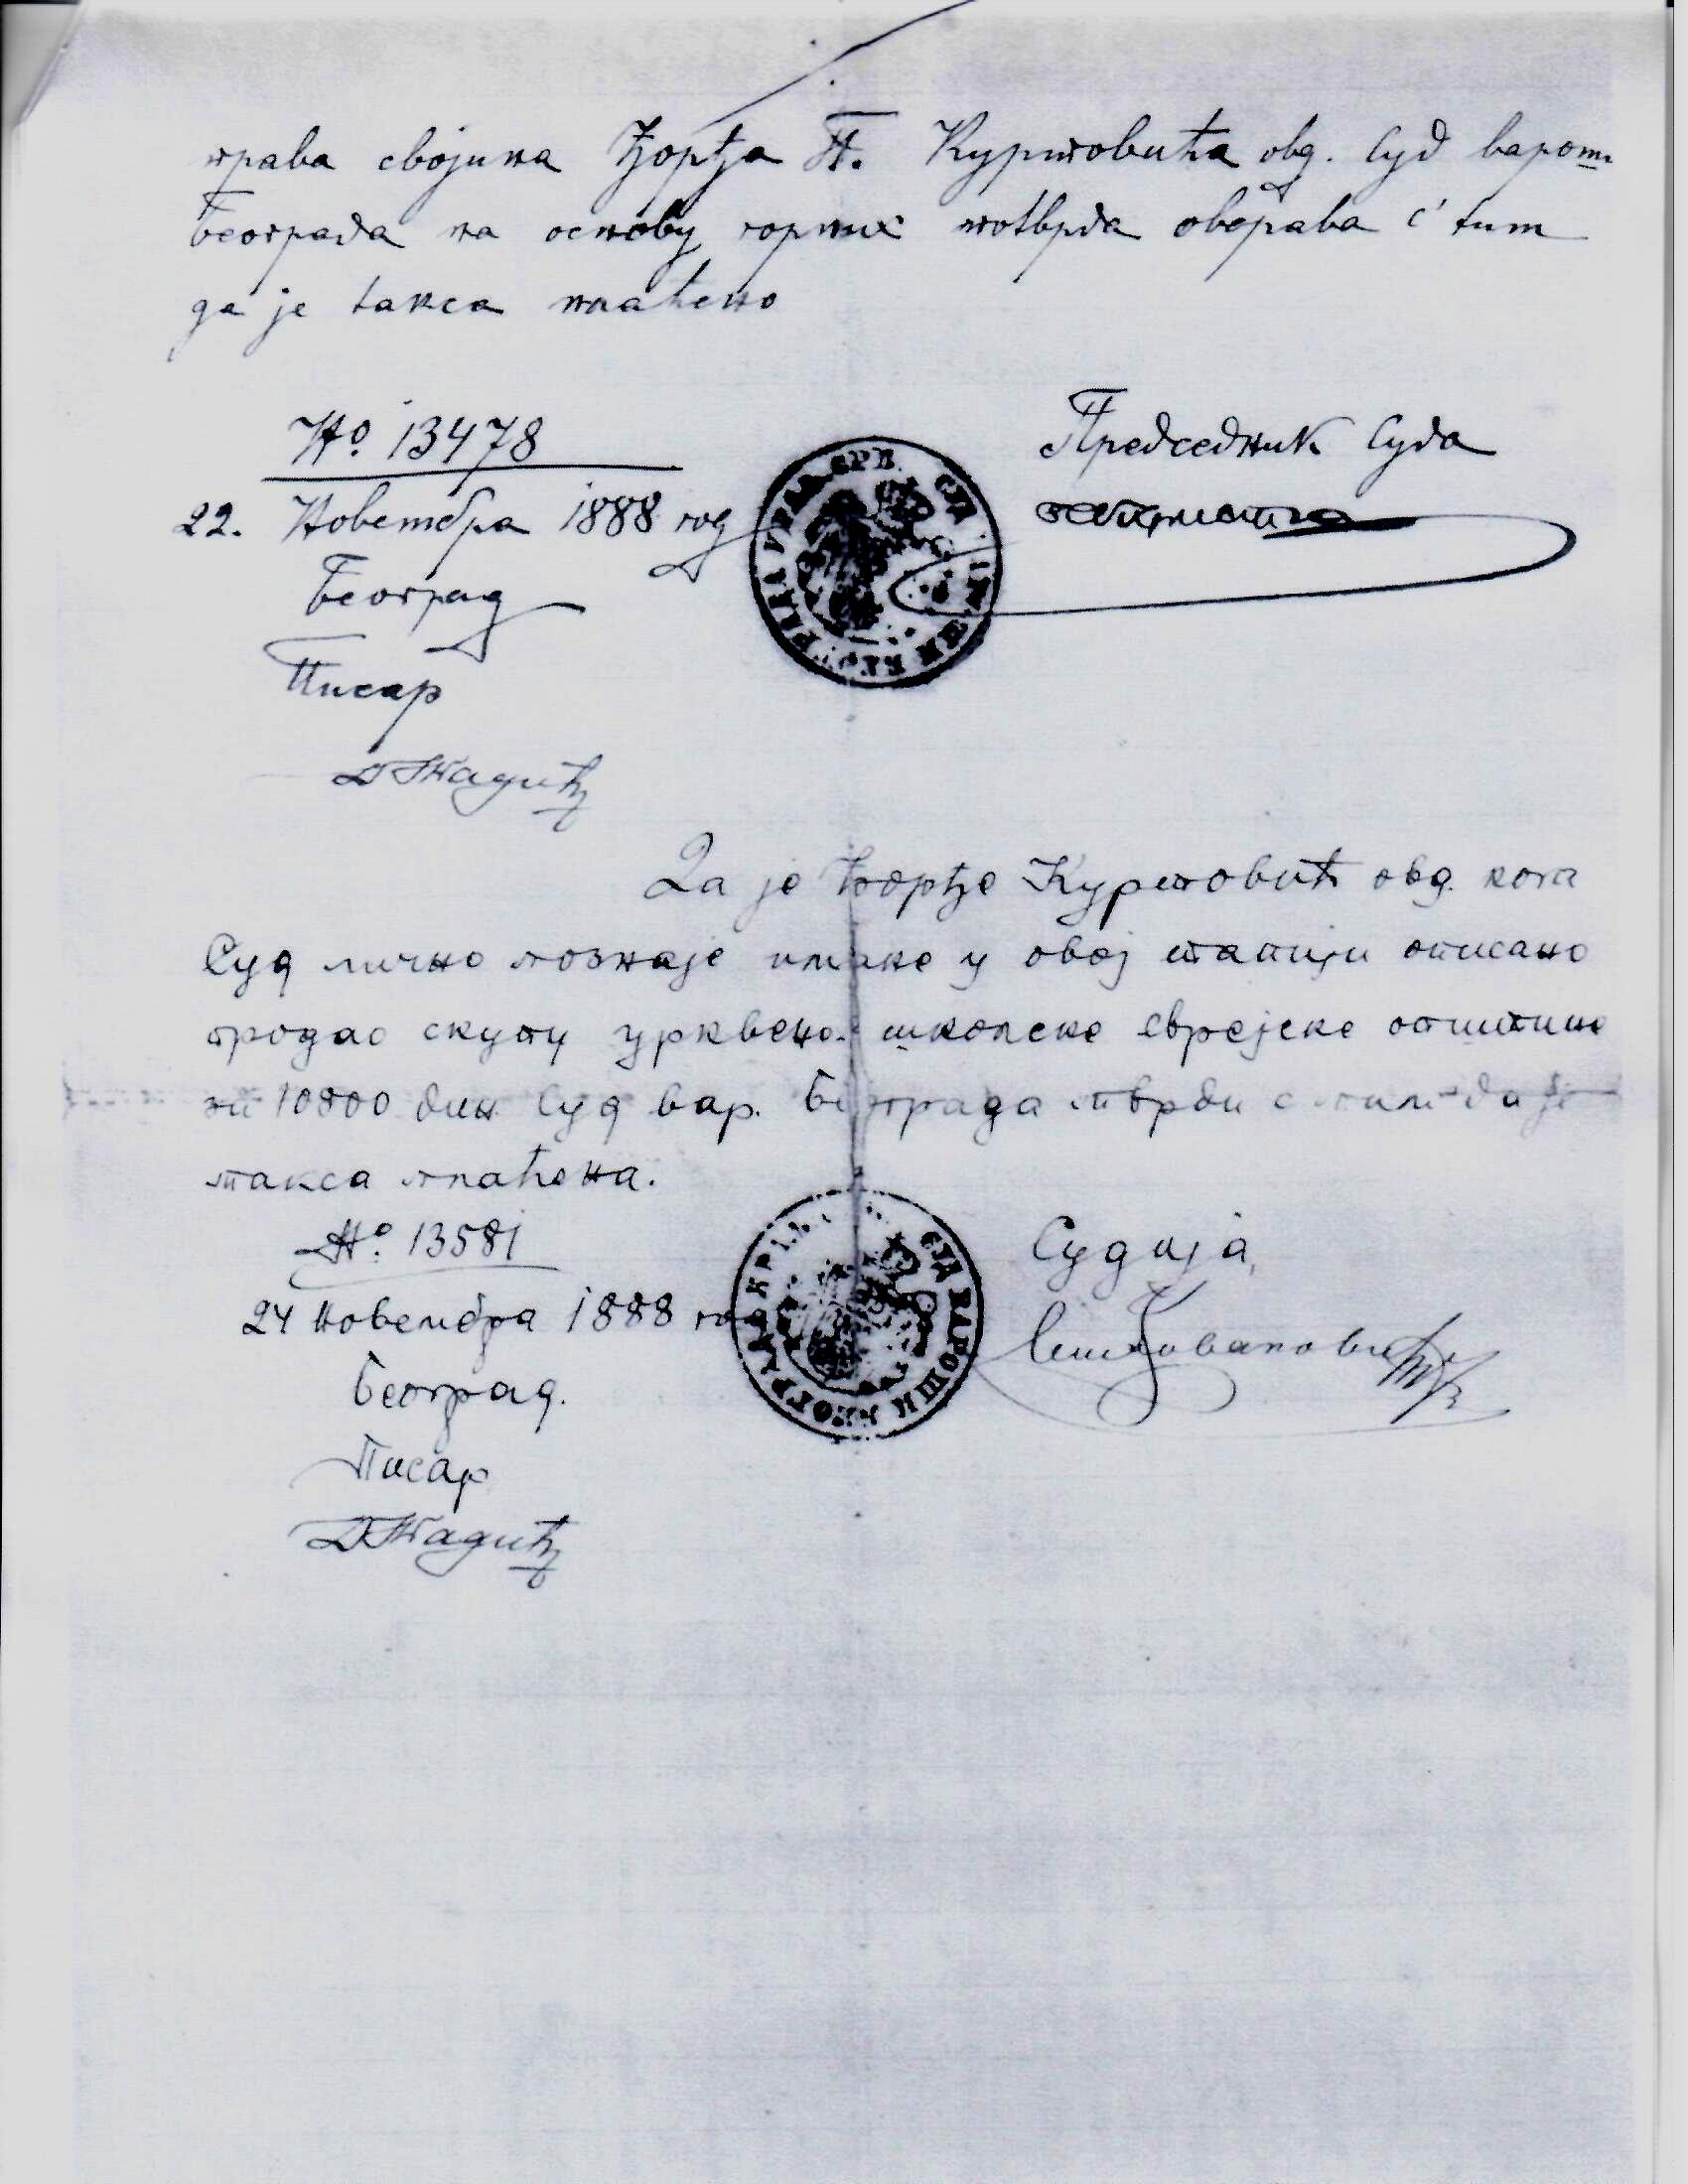 права својина Ђорђа П. Куртовића овд. Суд вароши
Београда на основу горњих потврда оверава с' тим
да је такса плаћено
№ 13478
Председник Суда
22. Новембра 1888 год
Београд
Писар
Да је Ђорђе Куртовић овд. кога
Суд лично познаје имање у овој тапији описано
продао скупу црквено-школске Еврејске општине
за 10800 дин Суд вар. Београда тврди с тим да је
такса плаћена.
№ 13581
Судија,
24 Новембра 1888 го
СУД ВАРОШИ БЕОГРАДА
Београд.
Писар